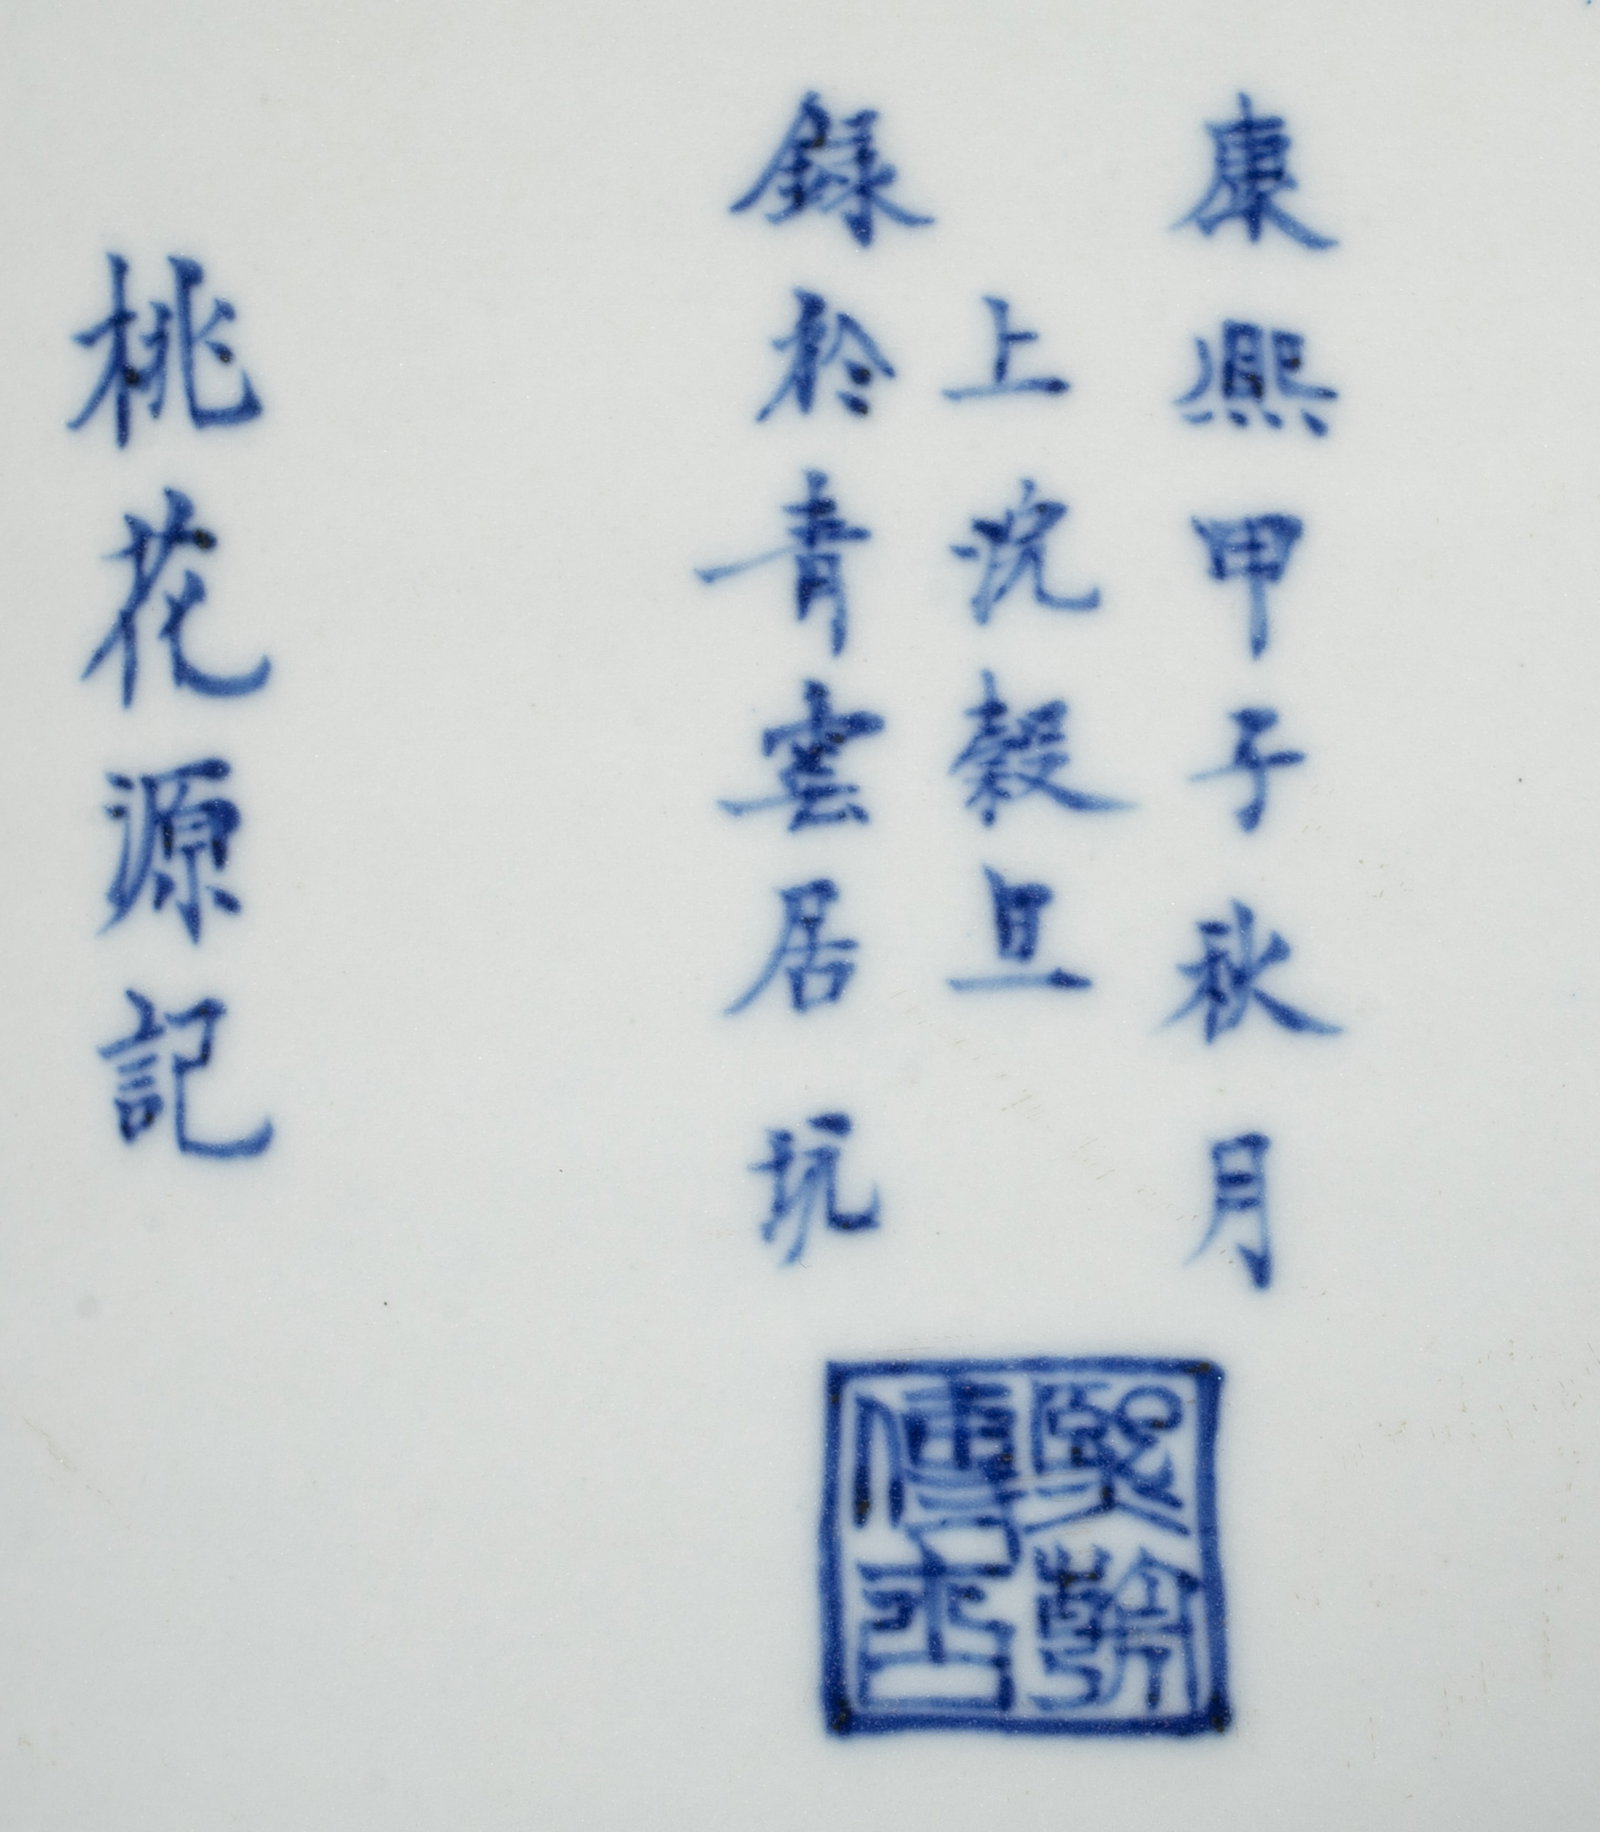 康熙甲子秋月
上浣穀旦
錄於青雲居玩
熙朝傳古
桃花源記